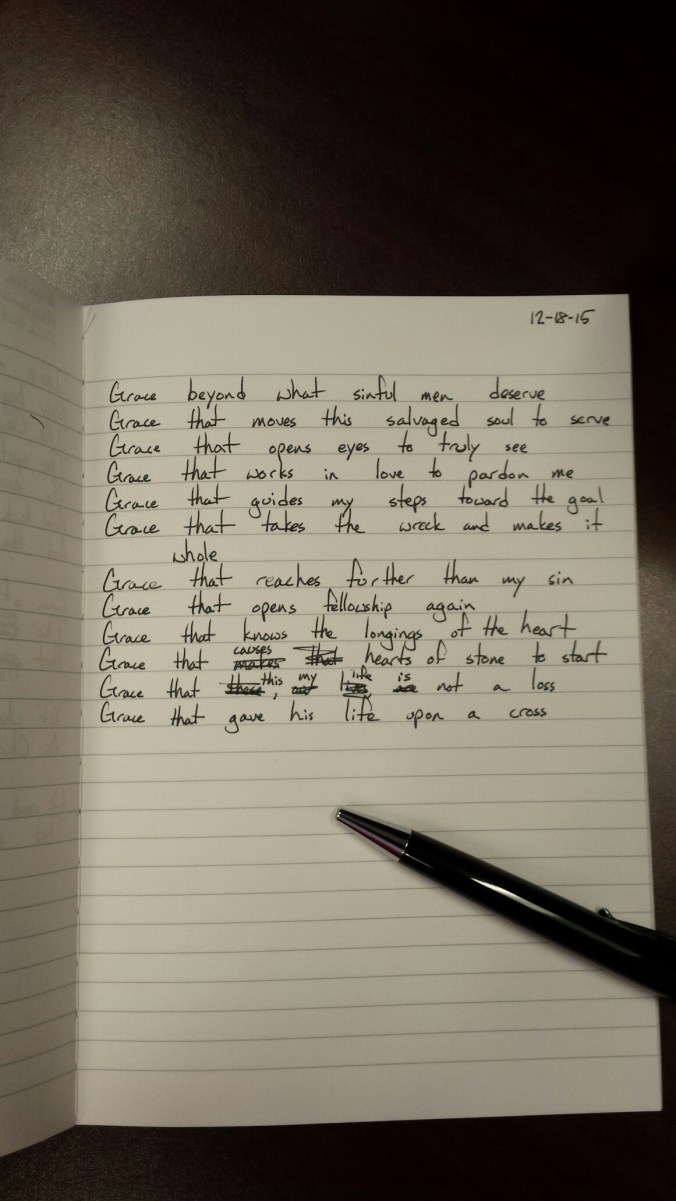 12-18-15
Grace beyond what sinful men deserve
Grace that moves this salvaged soul to serve
Grace that opens eyes to truly see
Grace that works in love to pardon me
Grace that guides my steps toward the goal
Grace that takes the wreck and makes it
whole
Grace that reaches further than my sin
Grace that opens fellowship again
Grace that knows the longings of the heart
Grace that causes hearts of stone to start
Grace that this, my life is not a loss
Grace that gave his life upon a cross